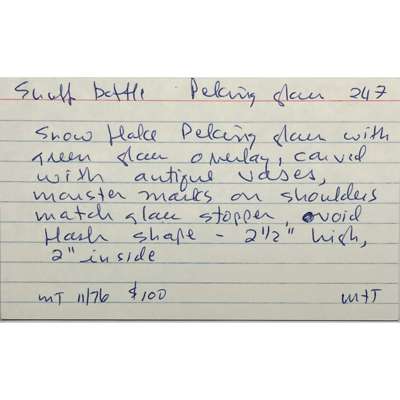 Snuff bottle Peking glass 247
Snow flake Peking glass with
green glass overlay, carved
with antique vases,
monster masks on shoulders
match glass stopper, ovoid
flask shape - 2 1/2" high,
2" inside
MT 11/76 $100 M+T